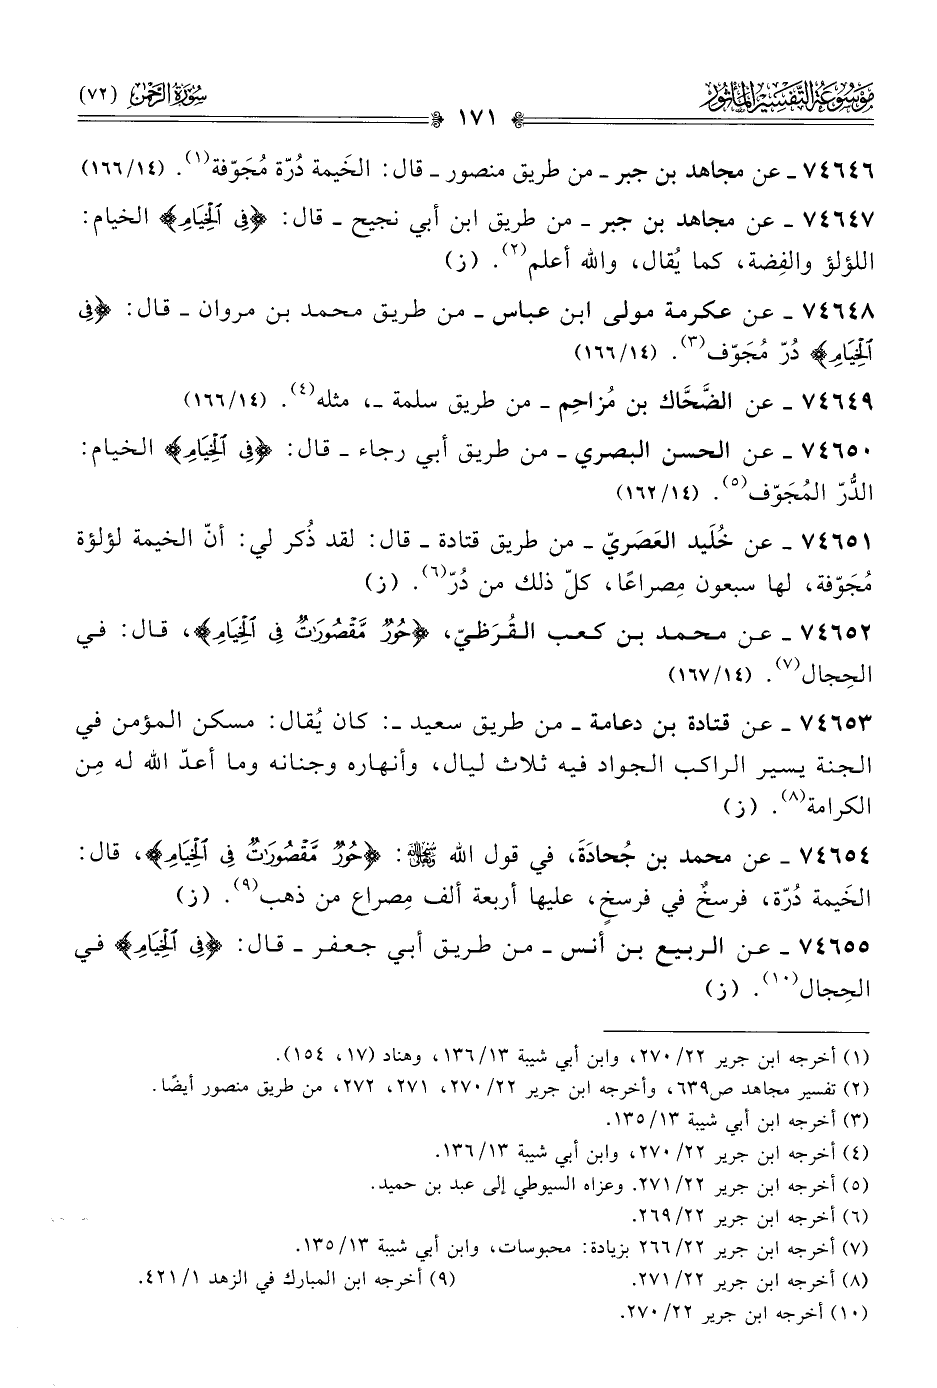 مَوْسُوعَة التَّفْسِير المَأْثُور
سُورَةُ الرَّحْمٰن (٧٢)
١٧١
٧٤٦٤٦ ـ عن مجاهد بن جبر ـ من طريق منصور ـ قال: الخَيمة دُرّة مُجَوّفة(١). (١٤/ ١٦٦)
٧٤٦٤٧ ـ عن مجاهد بن جبر ـ من طريق ابن أبي نجيح ـ قال: ﴿فِى ٱلْخِيَامِ﴾ الخيام:
اللؤلؤ والفِضة، كما يُقال، والله أعلم(٢). (ز)
٧٤٦٤٨ ـ عن عكرمة مولى ابن عباس ـ من طريق محمد بن مروان ـ قال: ﴿فِى
ٱلْخِيَامِ﴾ دُرّ مُجَوّف(٣). (١٤/ ١٦٦)
٧٤٦٤٩ ـ عن الضَّحَّاك بن مُزاحِم ـ من طريق سلمة ـ، مثله(٤). (١٤/ ١٦٦)
٧٤٦٥٠ ـ عن الحسن البصري ـ من طريق أبي رجاء ـ قال: ﴿فِى ٱلْخِيَامِ﴾ الخيام:
الدُّرّ المُجَوّف(٥). (١٤/ ١٦٢)
٧٤٦٥١ ـ عن خُلَيد العَصَريّ ـ من طريق قتادة ـ قال: لقد ذُكر لي: أنّ الخيمة لؤلؤة
مُجَوّفة، لها سبعون مِصراعًا، كلّ ذلك من دُرّ(٦). (ز)
٧٤٦٥٢ ـ عن محمد بن كعب القُرَظيّ، ﴿حُورٌ مَّقْصُورَٰتٌ فِى ٱلْخِيَامِ﴾، قال: في
الحِجال(٧). (١٤/ ١٦٧)
٧٤٦٥٣ ـ عن قتادة بن دعامة ـ من طريق سعيد ـ: كان يُقال: مسكن المؤمن في
الجنة يسير الراكب الجواد فيه ثلاث ليال، وأنهاره وجنانه وما أعدّ الله له مِن
الكرامة(٨). (ز)
٧٤٦٥٤ ـ عن محمد بن جُحادَةَ، في قول الله ﷿: ﴿حُورٌ مَّقْصُورَٰتٌ فِى ٱلْخِيَامِ﴾، قال:
الخَيمة دُرّة، فرسخٌ في فرسخٍ، عليها أربعة ألف مِصراع من ذهب(٩). (ز)
٧٤٦٥٥ ـ عن الربيع بن أنس ـ من طريق أبي جعفر ـ قال: ﴿فِى ٱلْخِيَامِ﴾ في
الحِجال(١٠). (ز)
(١) أخرجه ابن جرير ٢٢/ ٢٧٠، وابن أبي شيبة ١٣/ ١٣٦، وهناد (١٧، ١٥٤).
(٢) تفسير مجاهد ص٦٣٩، وأخرجه ابن جرير ٢٢/ ٢٧٠، ٢٧١، ٢٧٢، من طريق منصور أيضًا.
(٣) أخرجه ابن أبي شيبة ١٣/ ١٣٥.
(٤) أخرجه ابن جرير ٢٢/ ٢٧٠، وابن أبي شيبة ١٣/ ١٣٦.
(٥) أخرجه ابن جرير ٢٢/ ٢٧١. وعزاه السيوطي إلى عبد بن حميد.
(٦) أخرجه ابن جرير ٢٢/ ٢٦٩.
(٧) أخرجه ابن جرير ٢٢/ ٢٦٦ بزيادة: محبوسات، وابن أبي شيبة ١٣/ ١٣٥.
(٨) أخرجه ابن جرير ٢٢/ ٢٧١. (٩) أخرجه ابن المبارك في الزهد ١/ ٤٢١.
(١٠) أخرجه ابن جرير ٢٢/ ٢٧٠.